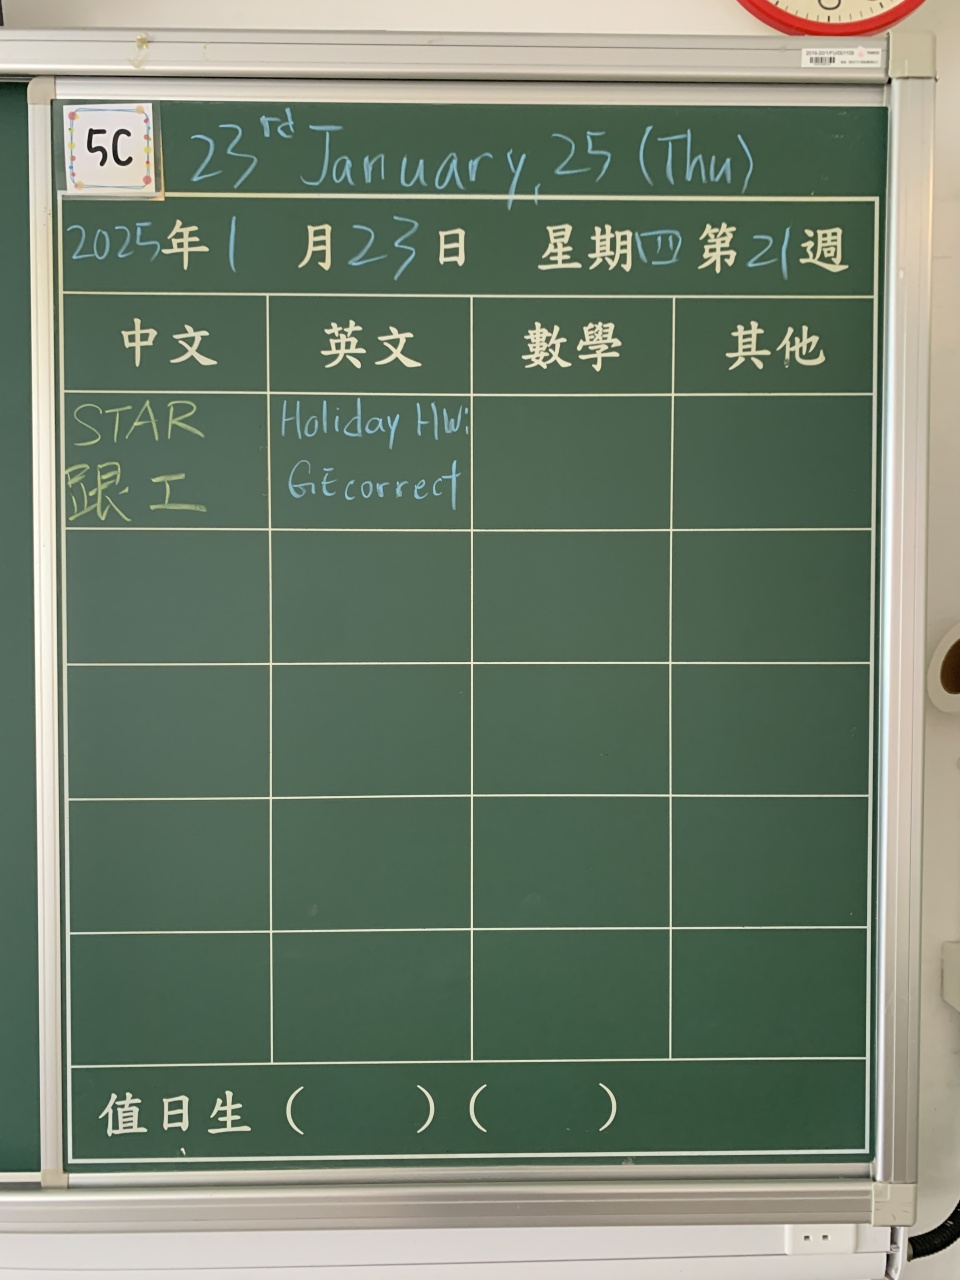 5C
23rd January, 25 (Thu)
2025年1月23日 星期四 第21週
中文 英文 數學 其他
STAR
跟工
Holiday HW:
GE correct
值日生 ( ) ( )